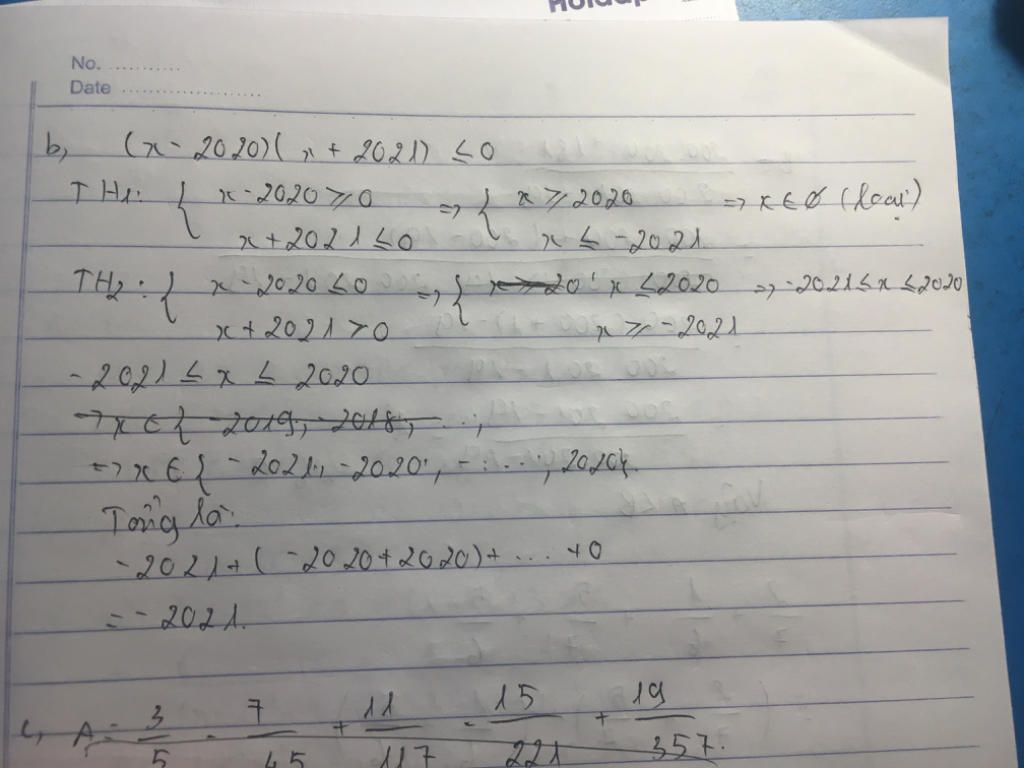 Holdap
No. ..........
Date ....................
b, (x - 2020)(x + 2021) ≤ 0
TH1: { x - 2020 ≥ 0 => { x ≥ 2020 => x ∈ Ø (loại)
x + 2021 ≤ 0 x ≤ -2021
TH2: { x - 2020 ≤ 0 => { x ≥ 20 x ≤ 2020 => -2021 ≤ x ≤ 2020
x + 2021 > 0 x ≥ -2021
-2021 ≤ x ≤ 2020
-> x ∈ { -2019; -2018; ...;
=> x ∈ { -2021; -2020; ...; 2020}.
Tổng là:
-2021 + (-2020 + 2020) + ... + 0
= -2021.
c, A = 3/5 - 7/45 + 11/117 - 15/221 + 19/357.